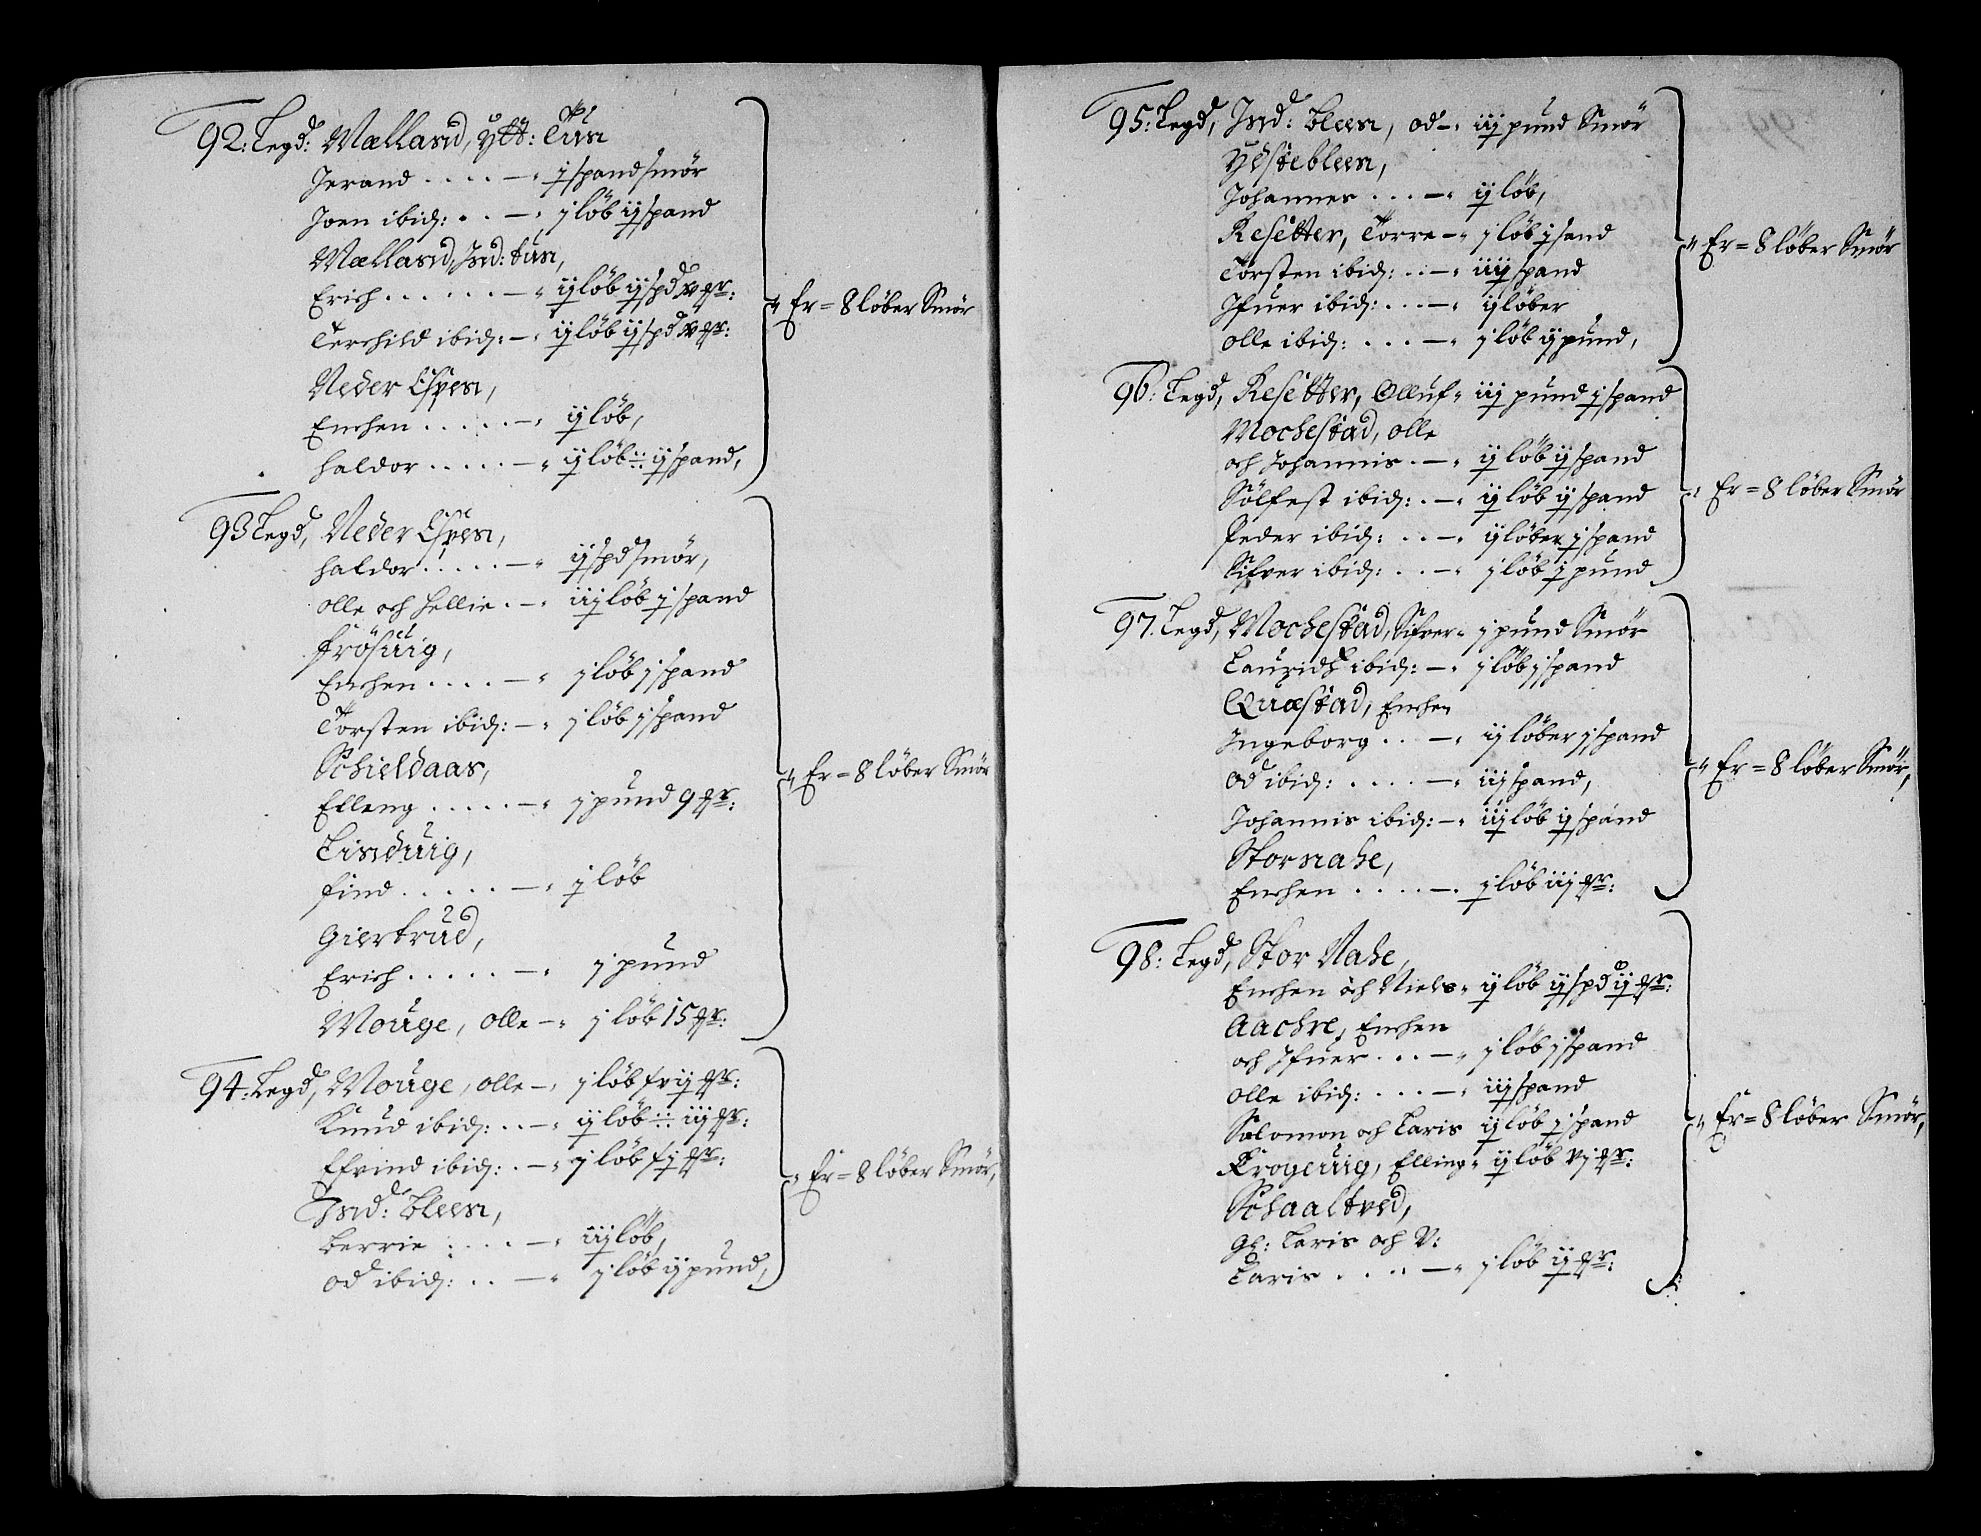 92: Legd: Mælland, ÿtt: Tun
Jerand . . . . — j spand smör
Joen ibid: . . — j löb ij spand
Mælland, Ind: tun,
Erich . . . . . . — ij löb ij spd
Terchild ibid: — ij löb ij spd
Neder Espen,
Enchen . . . . . — ij löb,
Haldor . . . . . — ij löb ij spand,
Er = 8 löber Smör
93 Legd, Neder Espen,
Haldor . . . . . — ij spd smör,
Olle och Hellie . — iij löb j spand
Frösuig,
Enchen . . . . — j löb j spand
Torsten ibid: — j löb j spand
Schieldaas,
Elleng . . . . . — j pund 9 mr:
Linduig,
Find . . . . . — j löb
Giertrud,
Erich . . . . . — j pund
Mouge, Olle — j löb 15 mr:
Er = 8 löber Smör
94: Legd, Mouge, Olle — j löb
Knud ibid: . . — ij löb iij mr:
Efvind ibid: . — j löb
Ind: Bleen,
Berrie . . . . — iij löb,
Od ibid: . . — j löb ij pund,
Er = 8 löber Smör,
95: Legd, Ind: Bleen, Od — iij pund Smör
Ÿdstebleen,
Johannes . . . — ij löb,
Resetter, Torre — j löb j sand
Torsten ibid: . . — iiij spand
Ifuer ibid: . . . — ij löber
Olle ibid: . . . — j löb ij pund,
Er = 8 löber Smör
96: Legd, Resetter, Olluf iij pund j spand
Mochestad, Olle
och Johannis . — ij löb ij spand
Sölfest ibid: . — ij löb ij spand
Peder ibid: . . — ij löber j spand
Sifver ibid: . . — j löb j pund
Er = 8 löber Smör
97. Legd, Mochestad, Sifver j pund Smör
Lauridh ibid: — j löb j spand
Quæstad, Enchen
Ingeborg . . — ij löber j spand
Od ibid: . . . . — iij spand,
Johannis ibid: — iij löb ij spand
Stornahe,
Enchen . . . . — j löb iij mr:
Er = 8 löber Smör,
98: Legd, Stor Nahe,
Enchen och Niels ij löb ij spd ij mr:
Aachre, Enchen
och Ifuer . . . — j löb j spand
Olle ibid: . . . — iij spand
Salomon och Laris ij löb j spand
Krogeuig, Elling ij löb vj mr:
Schaaltved,
Gl: Laris och V:
Laris . . . . — j löb ij mr:
Er = 8 löber Smör,